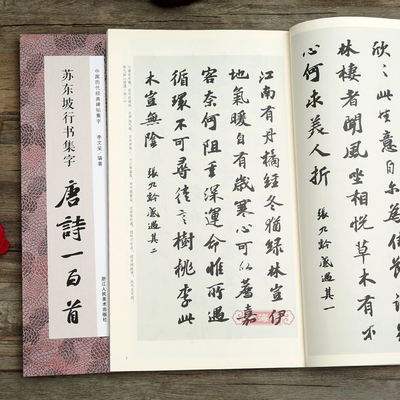 中国历代经典碑帖集字
李文采·编著
苏东坡行书集字
唐詩一百首
浙江人民美术出版社
欣〻此生意自尔
林棲者聞風坐相悦草木有本
心何求美人折 張九齡感遇其一
江南有丹橘經冬猶緑林豈伊
地氣暖自有歲寒心可以薦嘉
客奈何阻重深運命惟所遇
循環不可尋徒言樹桃李此
木豈無陰 張九齡感遇其二